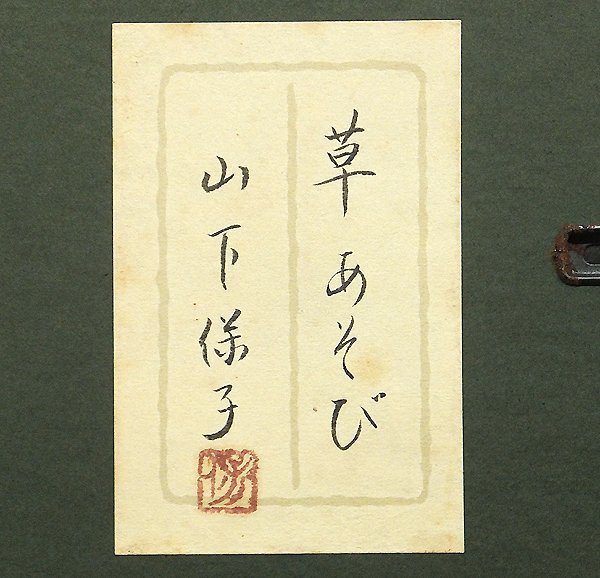 草あそび
山下保子